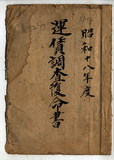 昭和十八年度
運賃調査復命書